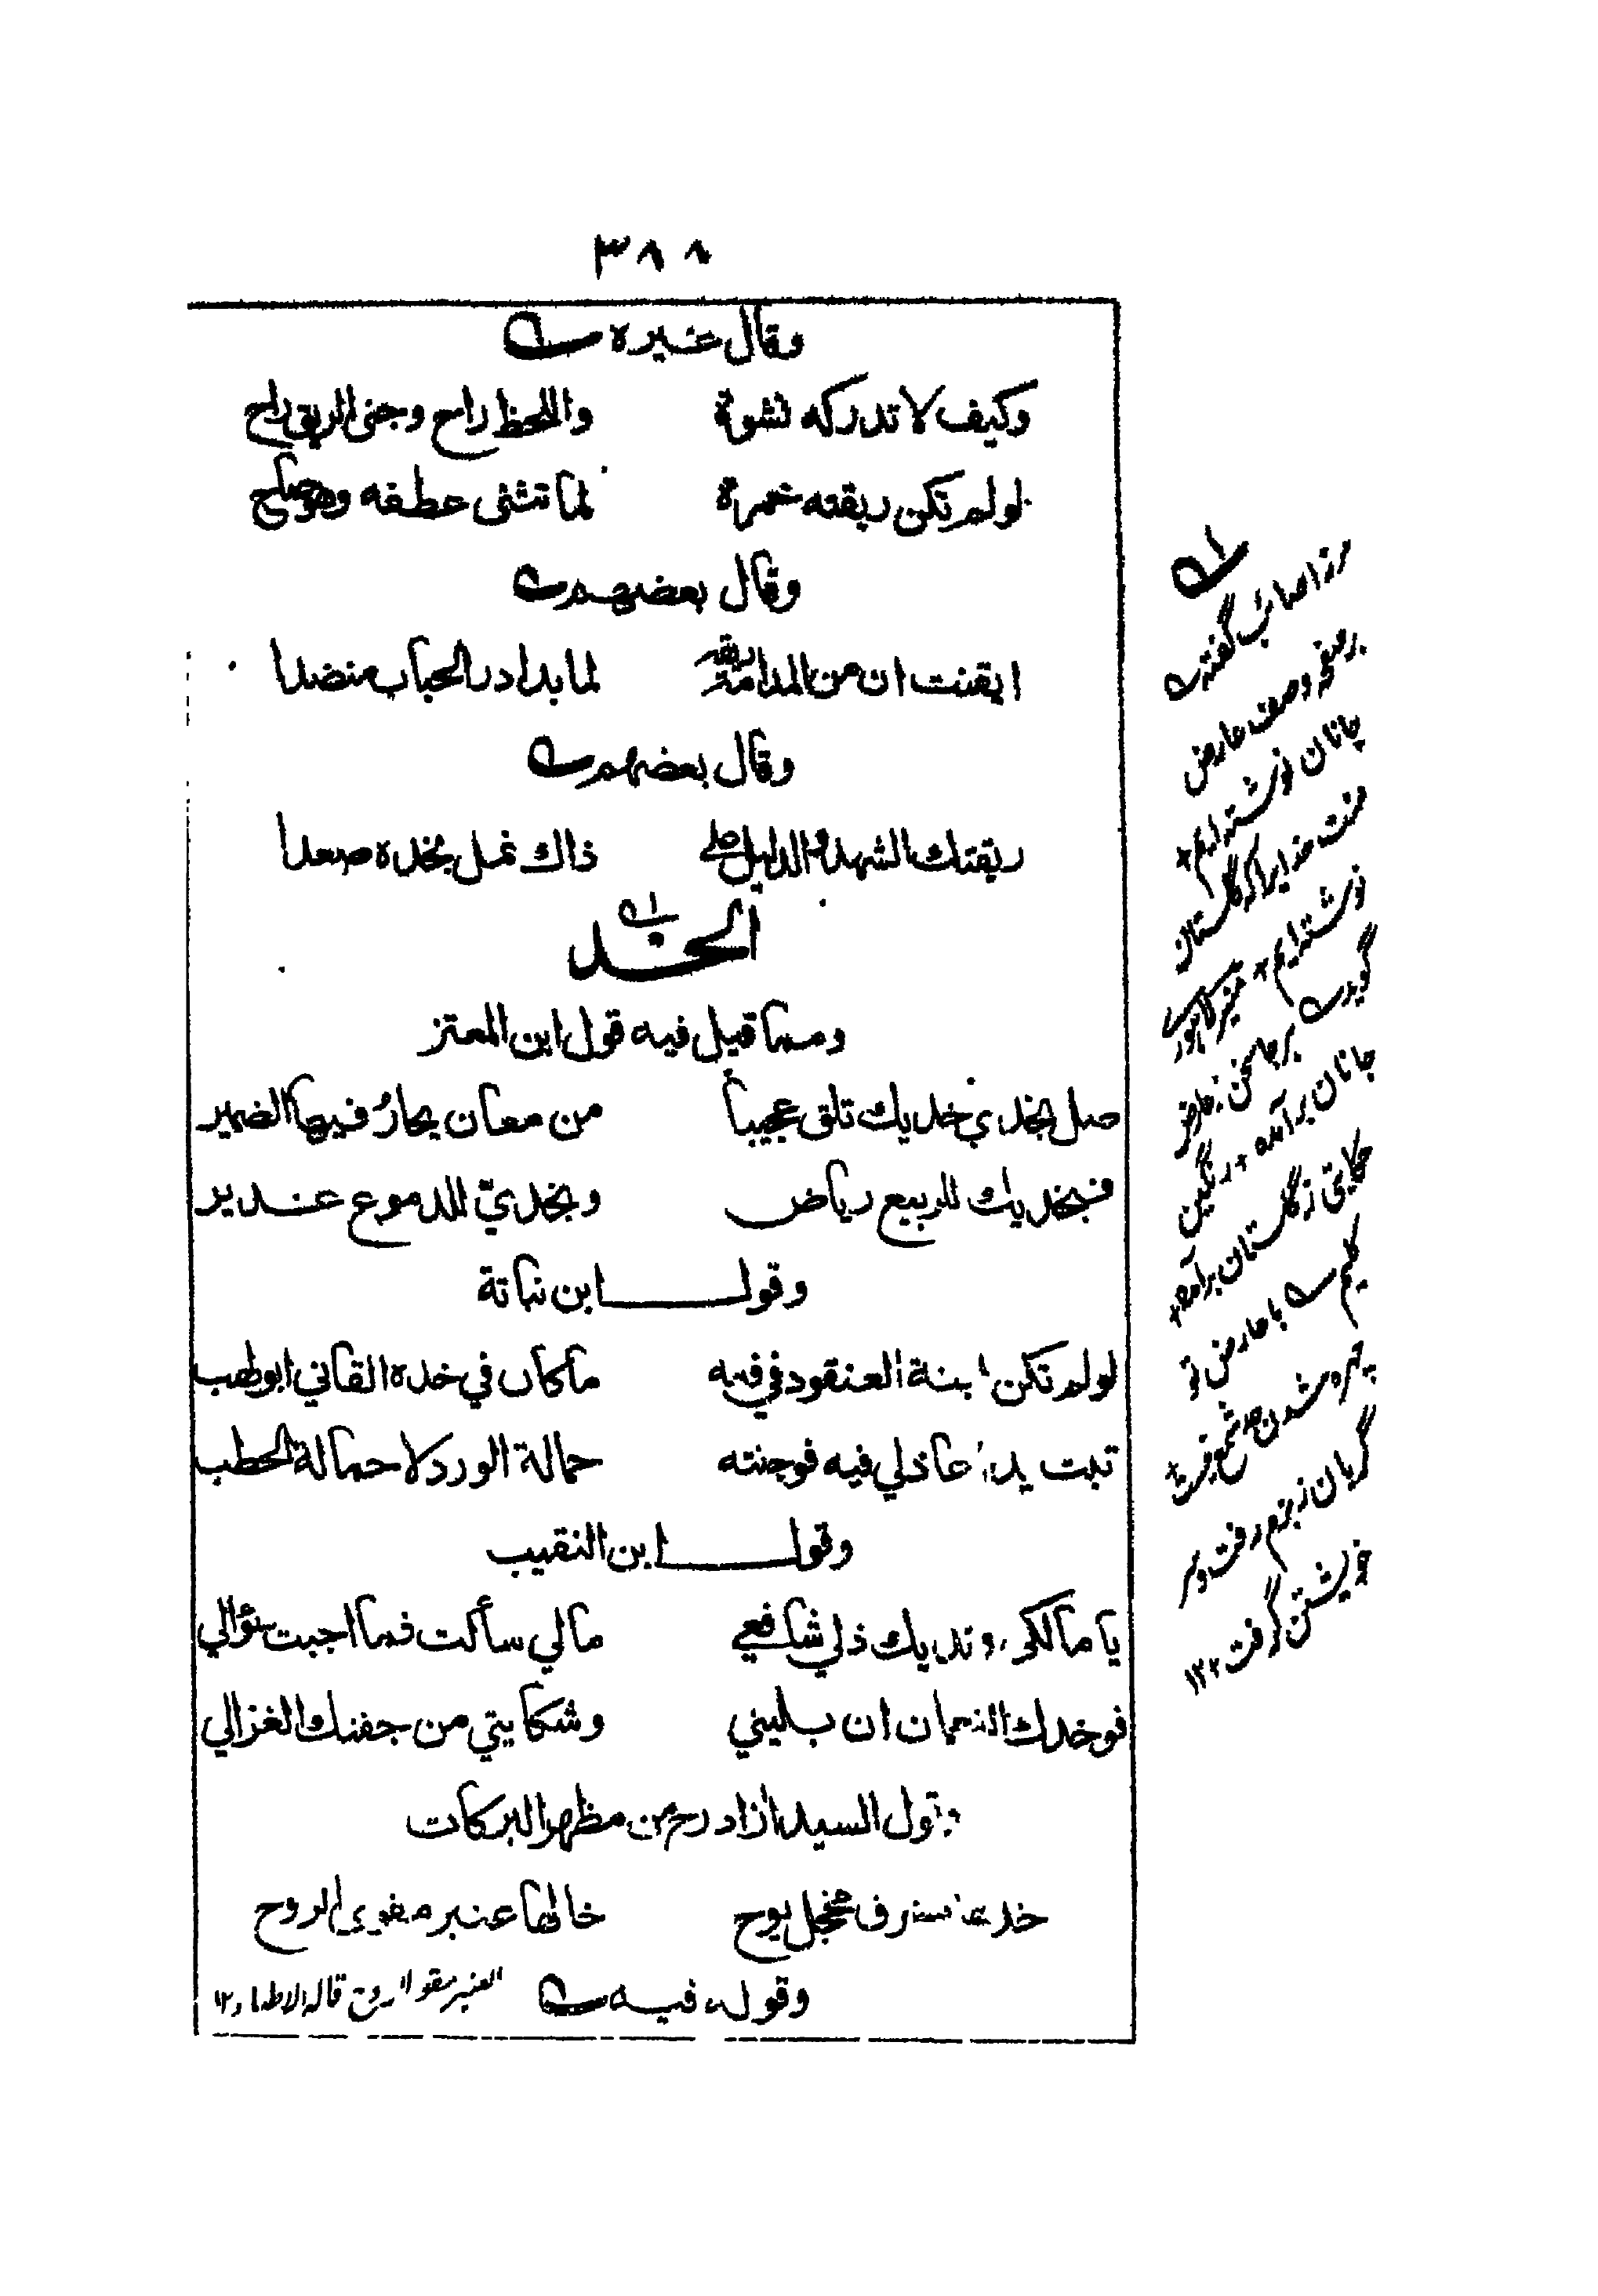 ٣٨٨
وقال غيره
وكيف لا تدركه نشوة واللحظ راح وجنى الريق راح
لو لم تكن ريقته خمرة لما تثنى عطفه وهو صاح
وقال بعضهم
ايقنت ان من المدامة ريقه لما بدا در الحباب منضدا
وقال بعضهم
ريقتك الشهد والدليل على ذاك نمل بخده صعدا
الخد
ومما قيل فيه قول ابن المعتز
صل بخدي خديك تلق عجيباً من معان يحارُ فيها الضمير
فبخديك للربيع رياض وبخديّ للدموع غدير
وقول ابن نباتة
لو لم تكن ابنة العنقود في فمه ما كان في خده القاني ابو لهب
تبت يدا عاذلي فيه فوجنته حمالة الورد لا حمالة الحطب
وقول ابن النقيب
يا مالكي ولديك ذلي شافعي مالي سألت فما اجبت سؤالي
فوخدك النعمان ان بليتي وشكايتي من جفنك الغزالي
وقول السيد ازاد رح من مظهر البركات
خد مخجل يوح خالها عنبر مقوى الروح
وقوله فيه العنبر مقو الروح قاله الاطباء ١٢
مرزا صائب گفته
بر صفحه وصف عارض
جانان نوشته ايم +
منت خدايرا كه گلستان
نوشته ايم + منير
گويد بر جا سخن ز عارض
جانان برآمده + رنگين
حكايتى ز گلستان برآمده +
كليم با عارض تو
چهره شدن شمع رفت +
گريان ز بزم رفت وسر
خويشتن گرفت ١٢